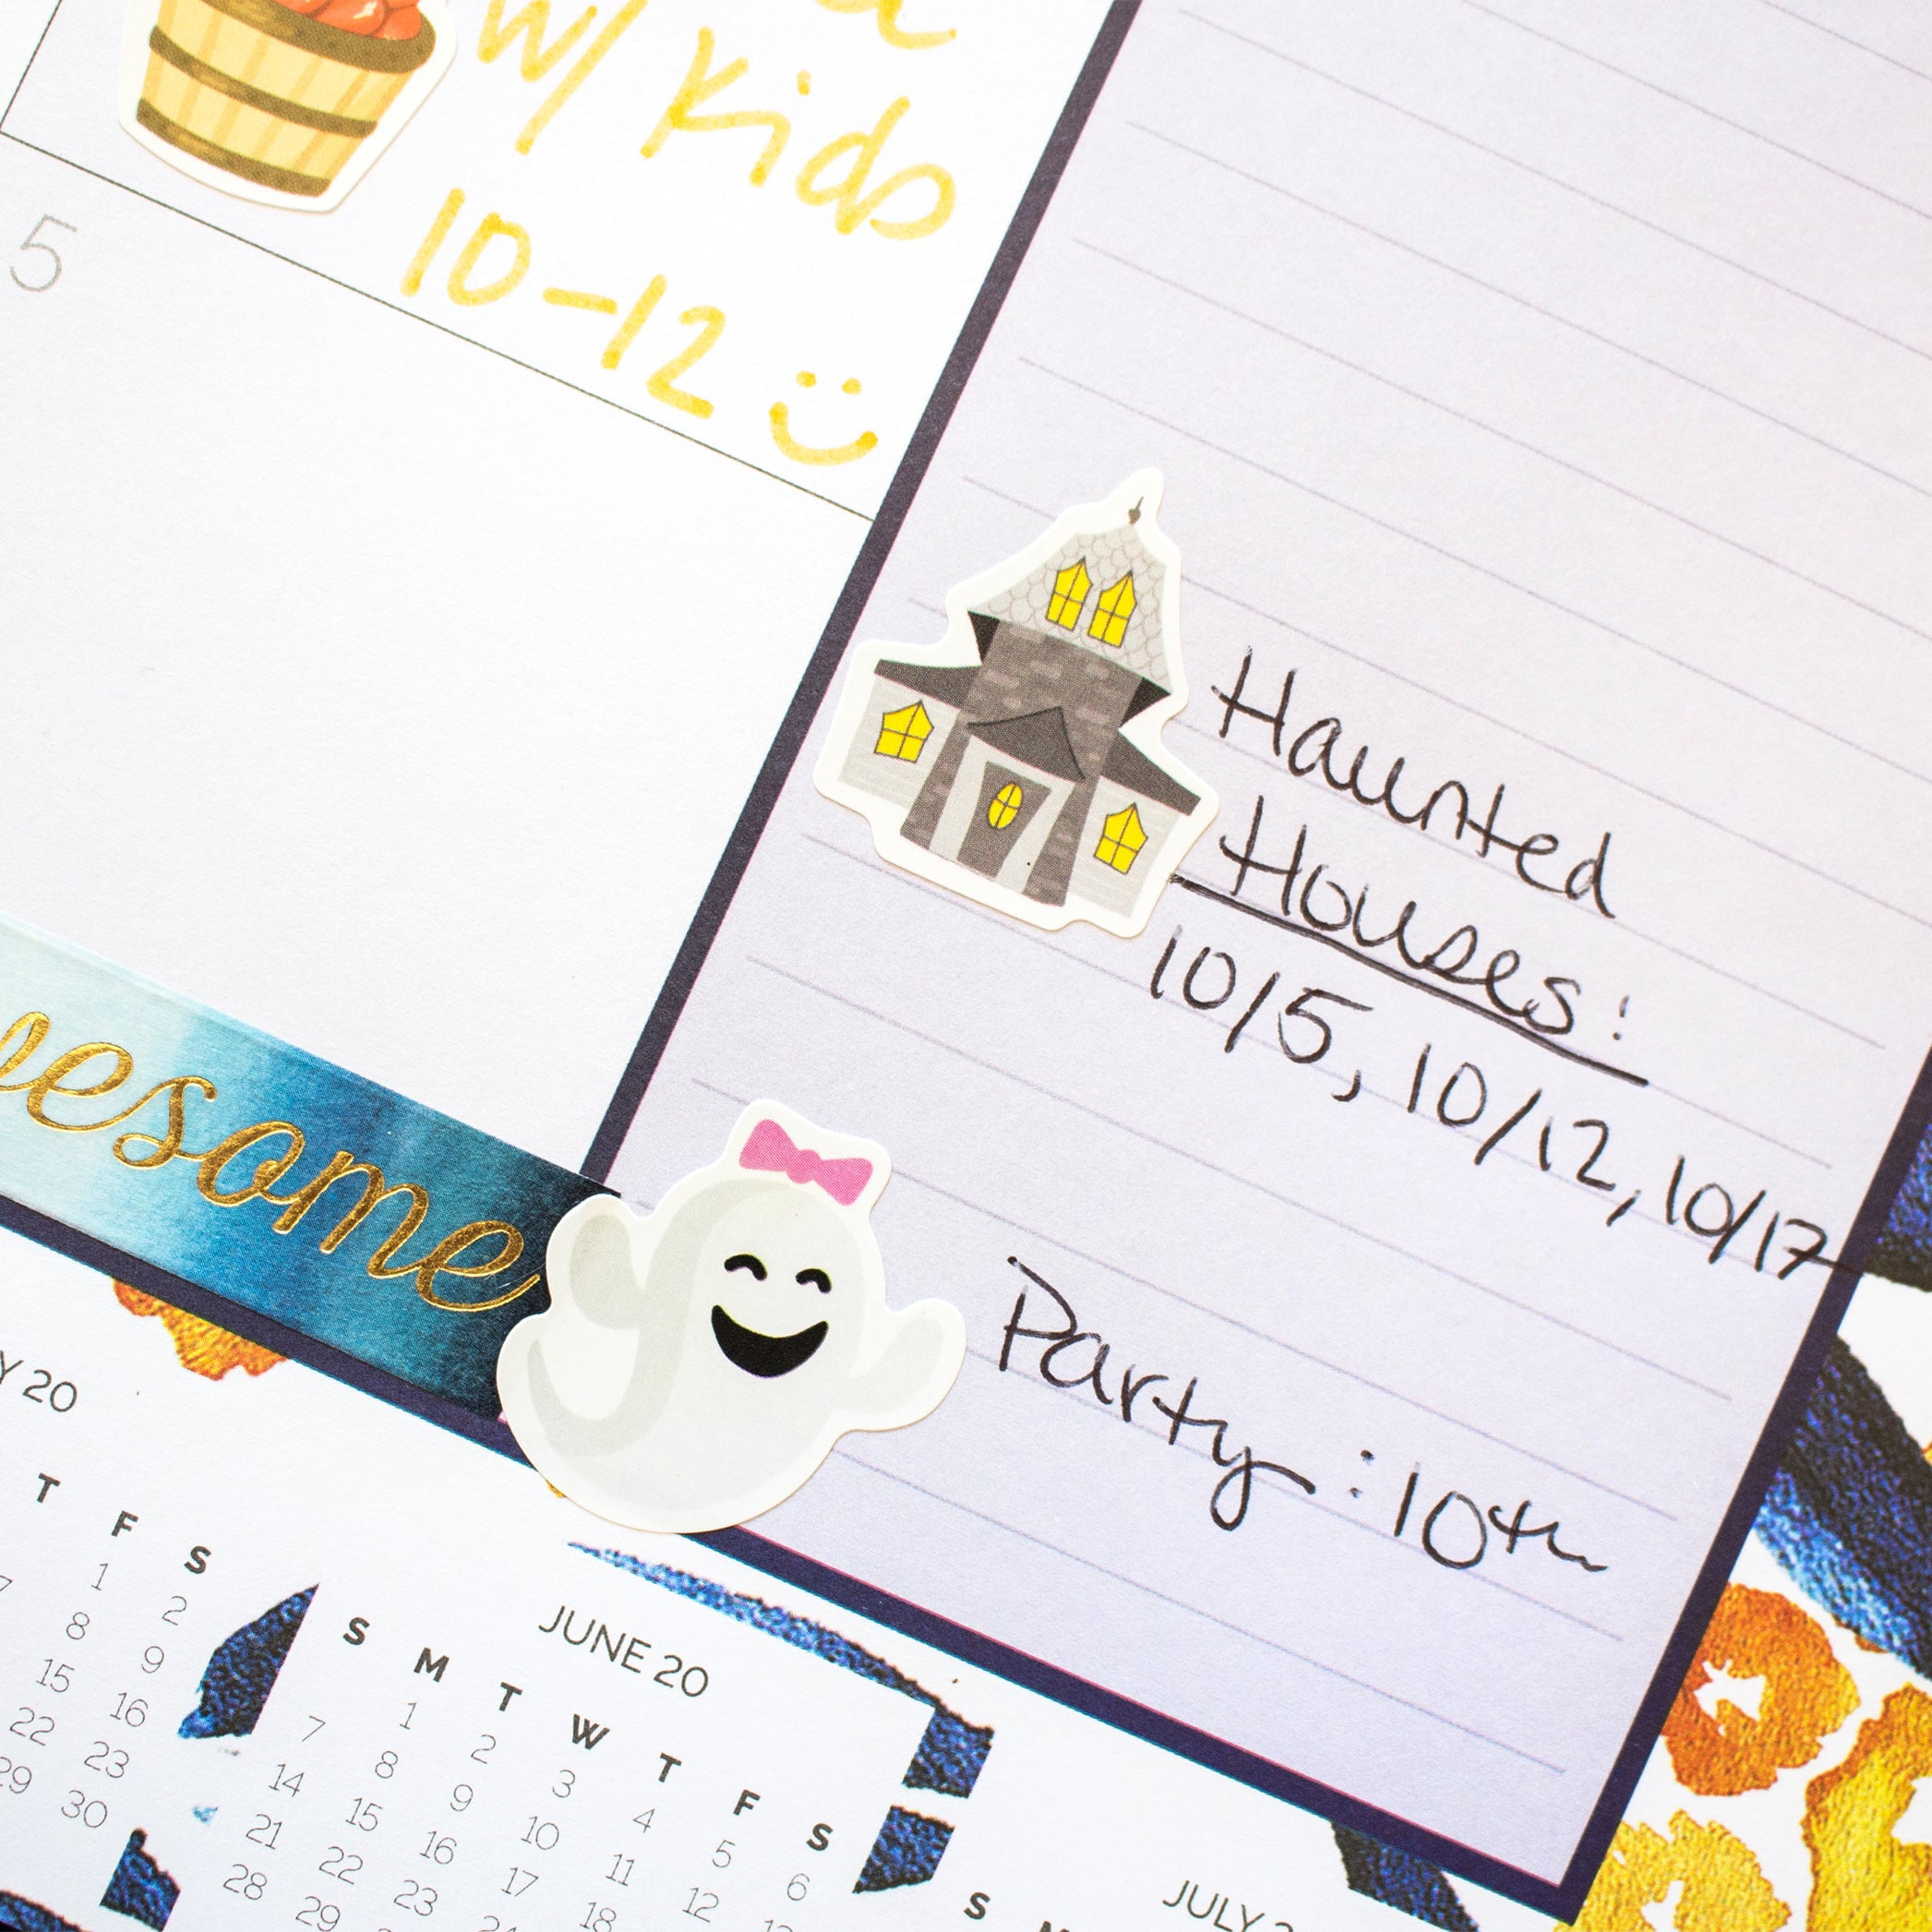 w/ Kids
10-12
5
Haunted
Houses:
10/5, 10/12, 10/17
Party: 10th
Y 20
T F S
1 2
8 9
15 16
22 23
29 30
JUNE 20
S M T W T F S
1 2 3 4 5 6
7 8 9 10 11 12
14 15 16 17 18
21 22 23
28 29
JULY
S